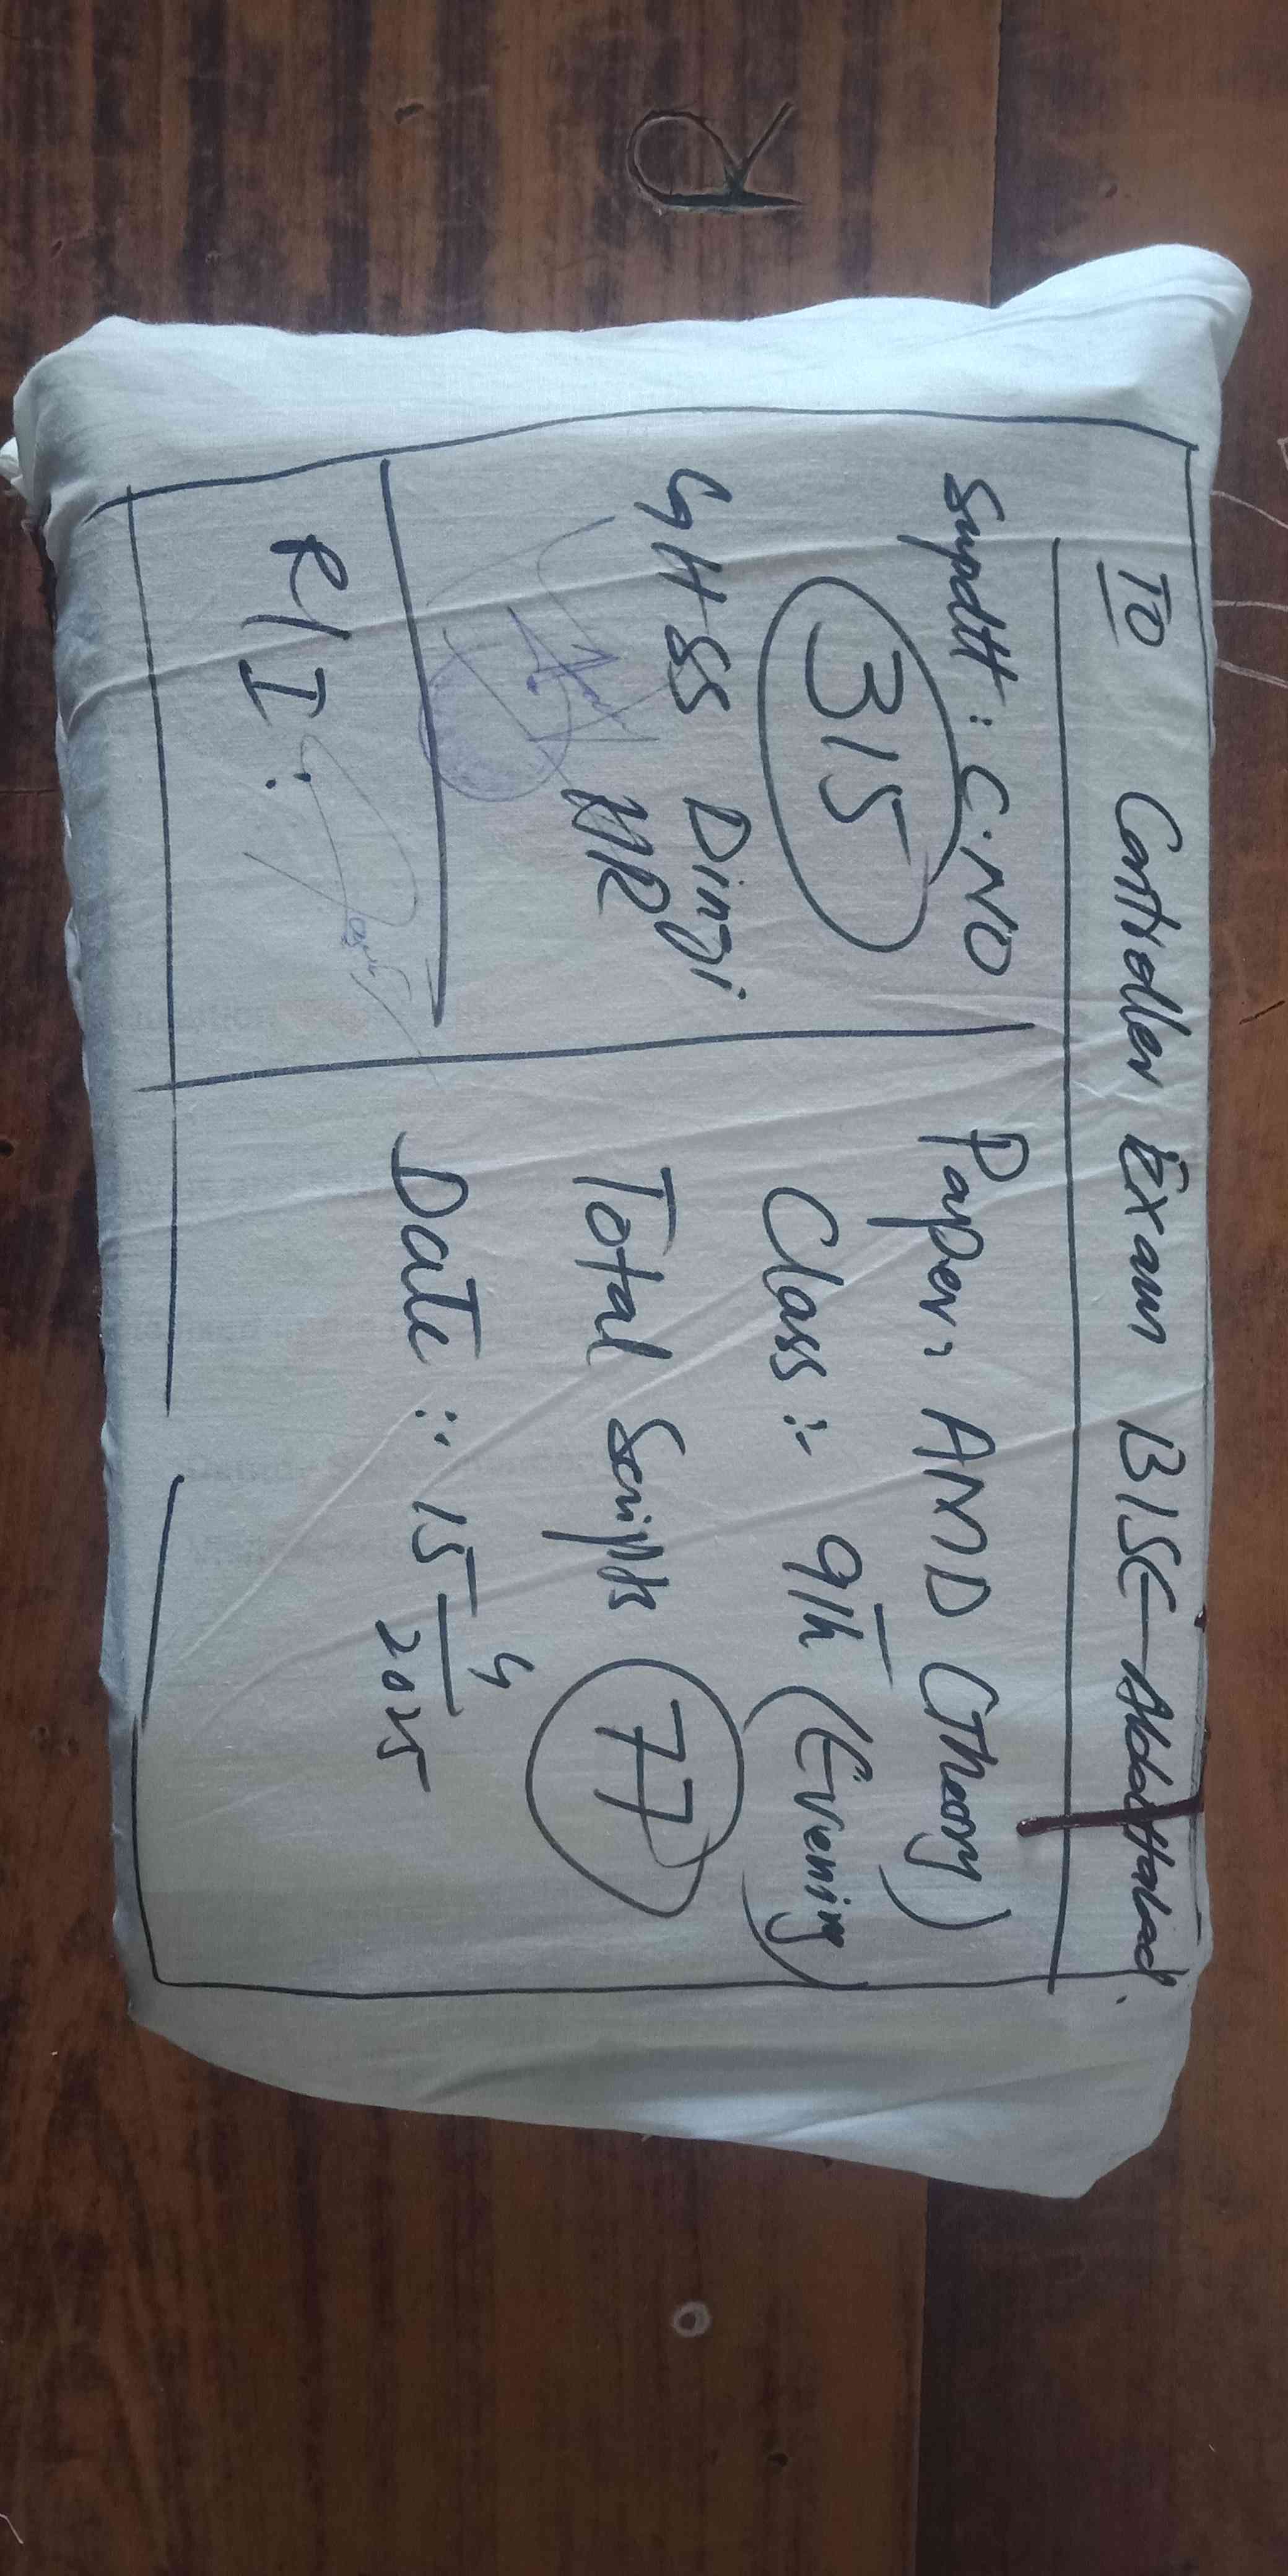 TO Controller Exam BISE Abbottabad.
Supdtt: C.NO
315
GHSS Dingi
HR
RI:
Paper:, AMD (Theory)
Class :- 9th (Evening)
Total Scripts 77
Date :- 15/4/2025
R